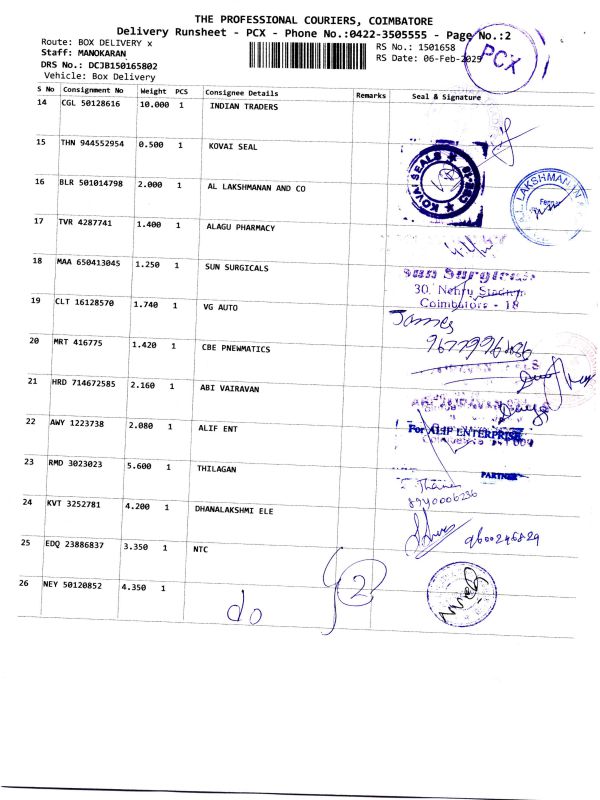 THE PROFESSIONAL COURIERS, COIMBATORE
Delivery Runsheet - PCX - Phone No.:0422-3505555 - Page No.:2
Route: BOX DELIVERY x
RS No.: 1501658
Staff: MANOKARAN
RS Date: 06-Feb-2025
PCX
DRS No.: DCJB150165802
Vehicle: Box Delivery
S No Consignment No Weight PCS Consignee Details Remarks Seal & Signature
14 CGL 50128616 10.000 1 INDIAN TRADERS
15 THN 944552954 0.500 1 KOVAI SEAL
KOVAI SEALS
16 BLR 501014798 2.000 1 AL LAKSHMANAN AND CO
LAKSHMANAN
17 TVR 4287741 1.400 1 ALAGU PHARMACY
18 MAA 650413045 1.250 1 SUN SURGICALS
Sun Surgicals
30, Nehru Stadium
Coimbatore - 18
19 CLT 16128570 1.740 1 VG AUTO
James
20 MRT 416775 1.420 1 CBE PNEWMATICS
21 HRD 714672585 2.160 1 ABI VAIRAVAN
22 AWY 1223738 2.080 1 ALIF ENT
For ALIF ENTERPRISE
Coimbatore
23 RMD 3023023 5.600 1 THILAGAN
PARTNER
8940006236
24 KVT 3252781 4.200 1 DHANALAKSHMI ELE
9600246829
25 EDQ 23886837 3.350 1 NTC
2
26 NEY 50120852 4.350 1
do